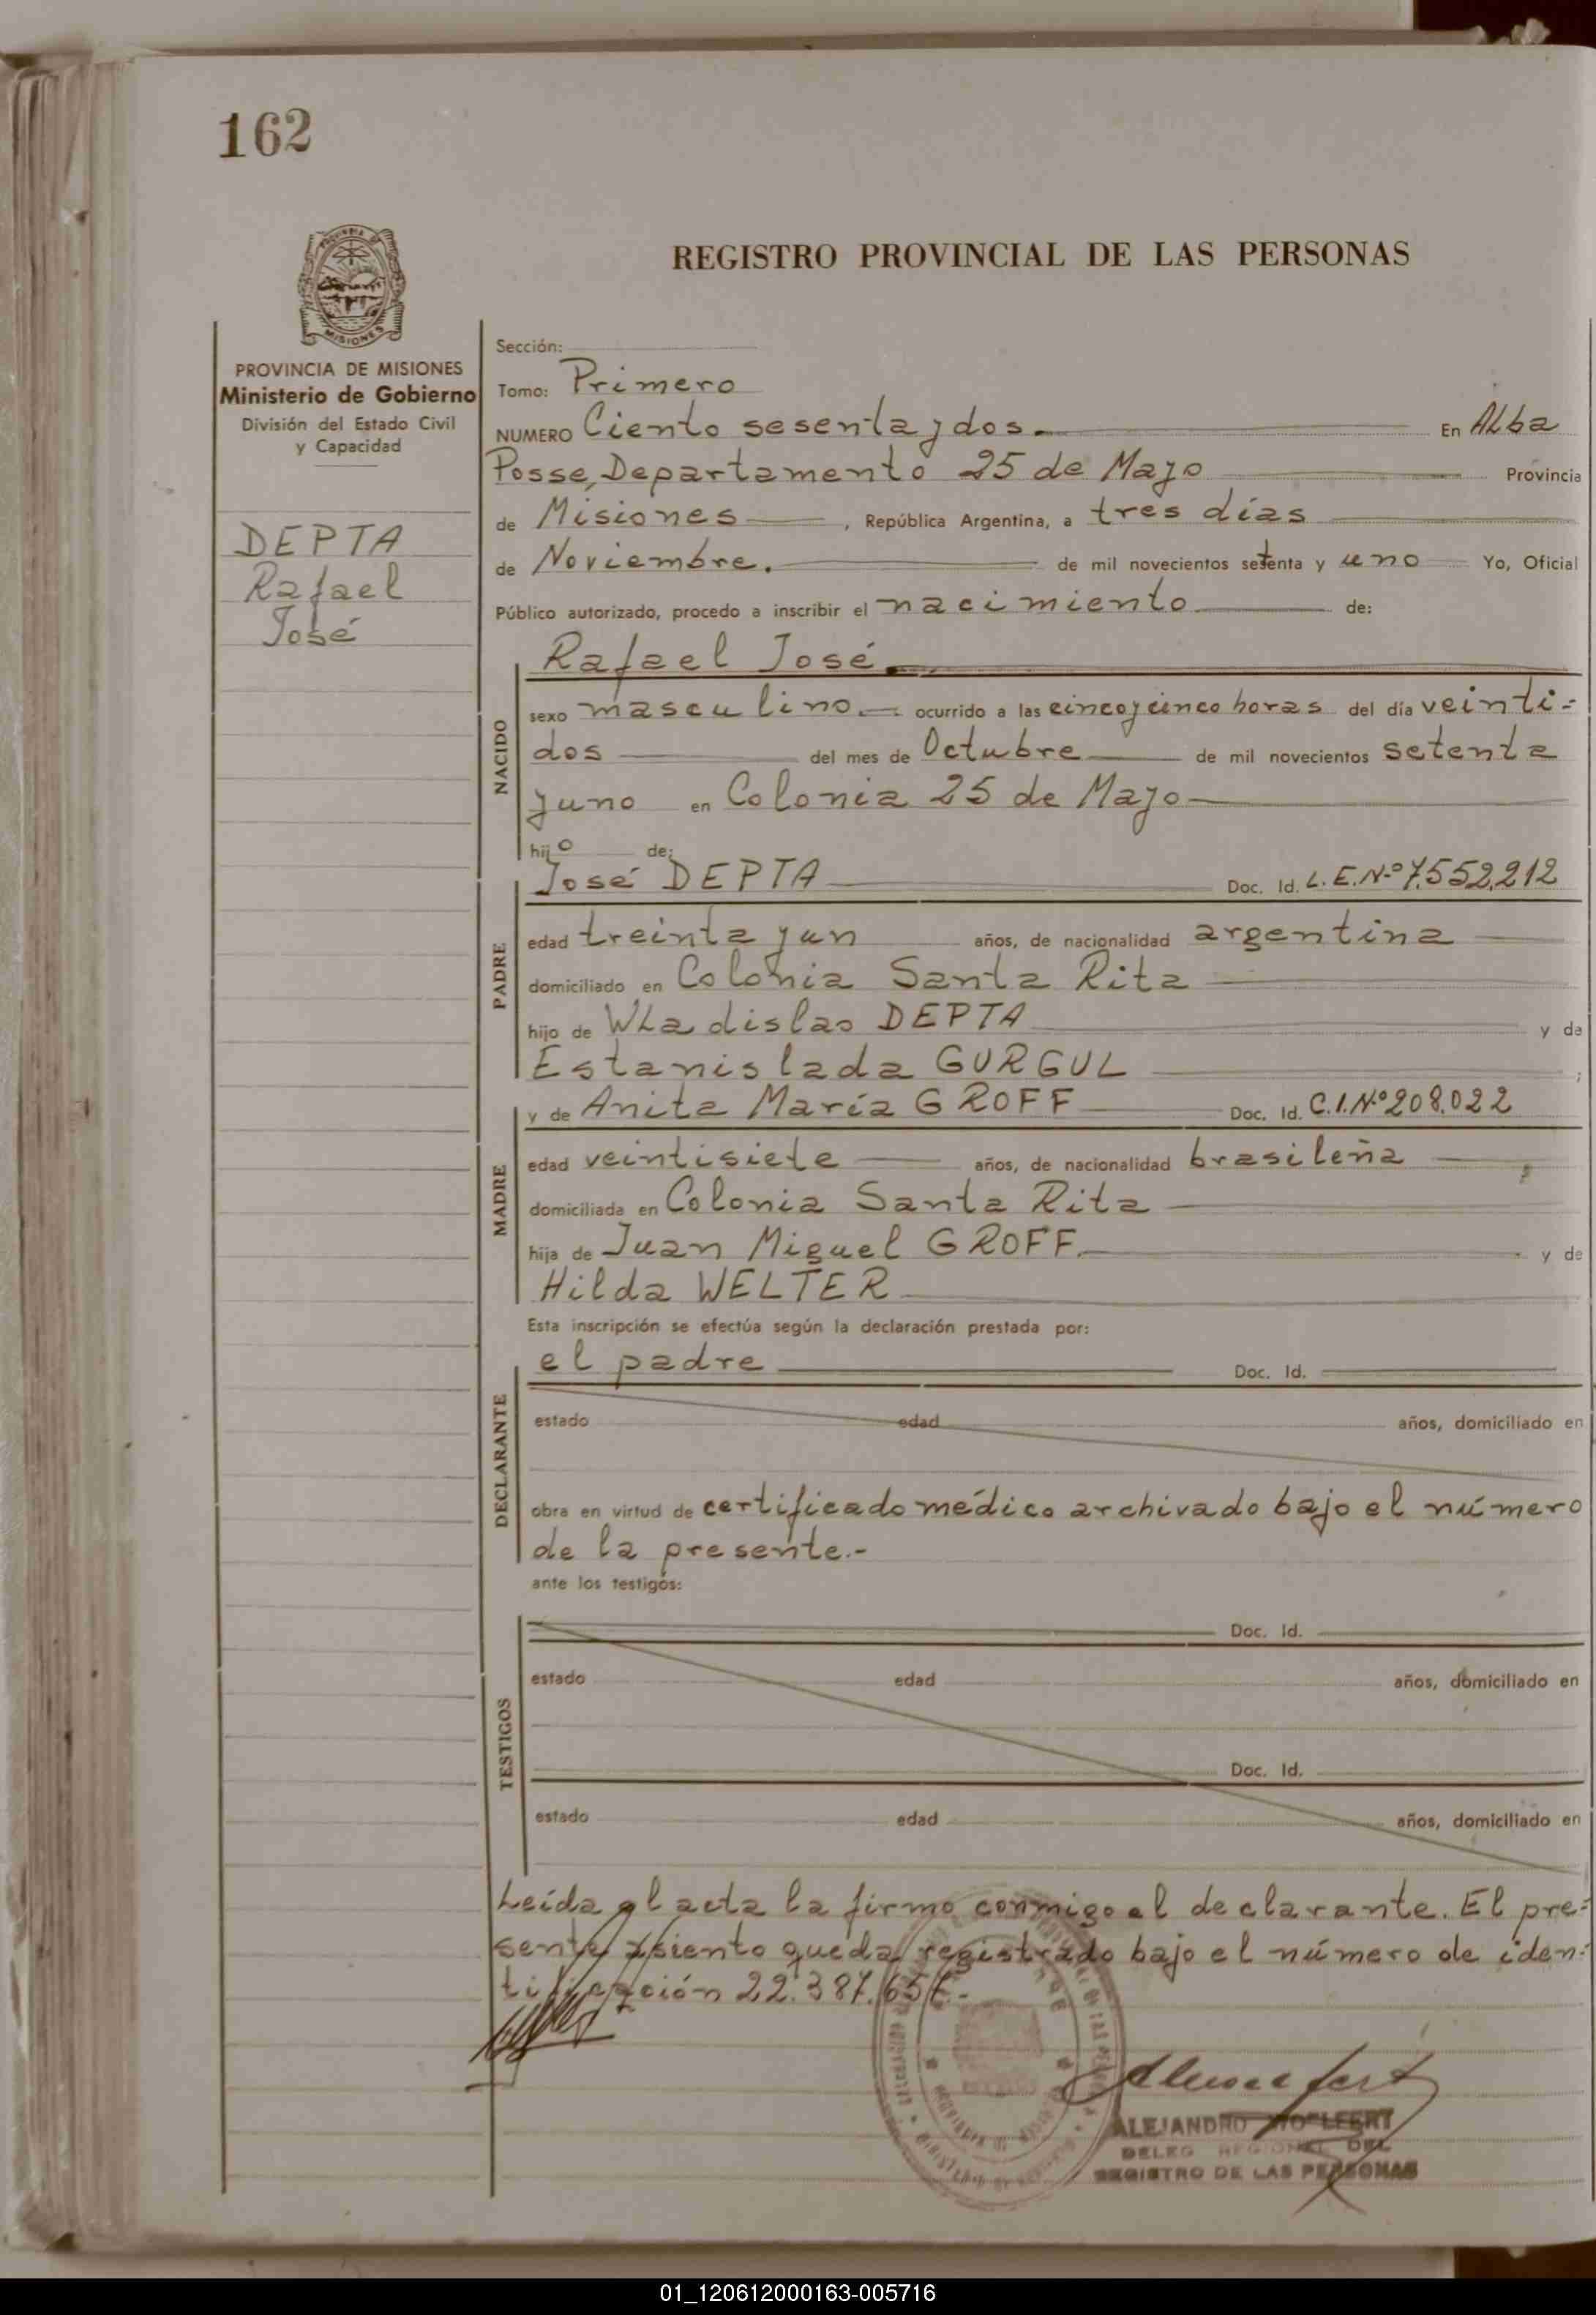 162
REGISTRO PROVINCIAL DE LAS PERSONAS
MISIONES
PROVINCIA DE MISIONES
Ministerio de Gobierno
División del Estado Civil
y Capacidad
DEPTA
Rafael
José
Sección:
Tomo: Primero
NUMERO Ciento sesenta y dos.- En Alba
Posse, Departamento 25 de Mayo Provincia
de Misiones, República Argentina, a tres días
de Noviembre. de mil novecientos setenta y uno Yo, Oficial
Público autorizado, procedo a inscribir el nacimiento de:
Rafael José.
NACIDO
sexo masculino ocurrido a las cinco y cinco horas del día veinti-
dos del mes de Octubre de mil novecientos setenta
y uno en Colonia 25 de Mayo
hijo de:
PADRE
José DEPTA Doc. Id. L.E.Nº 7.552.212
edad treinta y un años, de nacionalidad argentina
domiciliado en Colonia Santa Rita
hijo de Wladislao DEPTA y de
Estanislada GURGUL ;
MADRE
y de Anita María GROFF Doc. Id. C.I.Nº 208.022
edad veintisiete años, de nacionalidad brasileña
domiciliada en Colonia Santa Rita
hija de Juan Miguel GROFF. y de
Hilda WELTER
Esta inscripción se efectúa según la declaración prestada por:
DECLARANTE
el padre Doc. Id.
estado edad años, domiciliado en
obra en virtud de certificado médico archivado bajo el número
de la presente.-
ante los testigos:
TESTIGOS
Doc. Id.
estado edad años, domiciliado en
Doc. Id.
estado edad años, domiciliado en
Leída el acta la firmo conmigo el declarante. El pre-
sente asiento queda registrado bajo el número de iden-
tificación 22.387.
ALEJANDRO
DELEG REGIONAL DEL
REGISTRO DE LAS PERSONAS
01_120612000163-005716